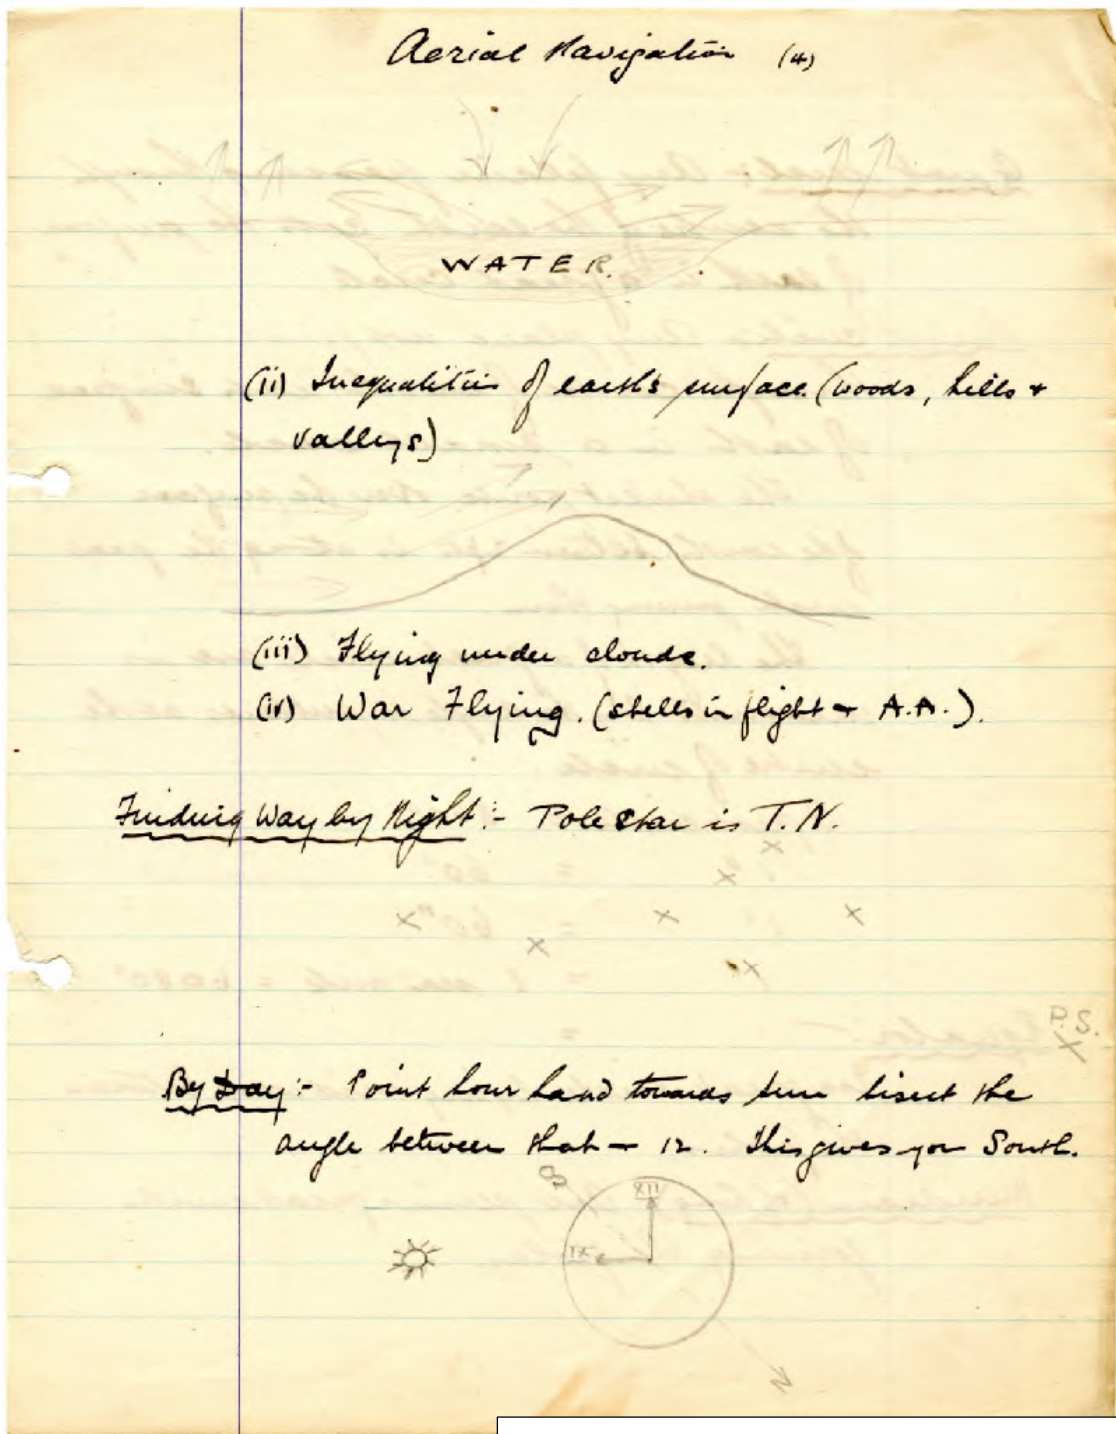 Aerial Navigation (4)
WATER.
(ii) Inequalities of earth's surface. (woods, hills +
valleys)
(iii) Flying under clouds.
(iv) War Flying. (shells in flight + A.A.).
Finding Way by Night:- Pole Star is T.N.
P.S.
By Day:- Point hour hand towards sun bisect the
angle between that + 12. This gives you South.
S
XII
IX
N